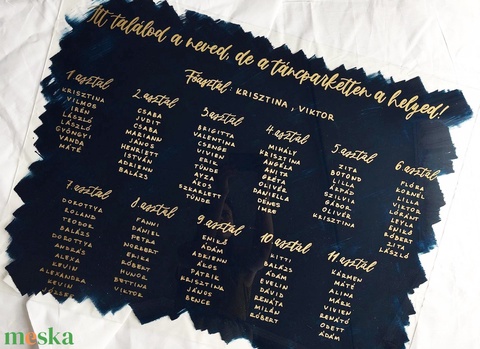 Itt találod a neved, de a táncparketten a helyed!
Főasztal: KRISZTINA, VIKTOR
1 asztal
KRISZTINA
VILMOS
IRÉN
LÁSZLÓ
LÁSZLÓ
GYÖNGYI
VANDA
MÁTÉ
2 asztal
CSABA
ÉVA
CSABA
MARIANN
JÁNOS
HENRIETT
ISTVÁN
ADRIENN
BALÁZS
3 asztal
BRIGITTA
VALENTINA
CSENGE
VIVIEN
ERIK
TÜNDE
AYZA
ÁKOS
SZKARLETT
TÜNDE
4 asztal
MIHÁLY
KRISZTINA
ANGÉLA
ANITA
GRÉTA
OLIVÉR
DANIELLA
DÉNES
IMRE
5 asztal
ZITA
BOTOND
LILLA
ÁRPÁD
SZILVIA
GÁBOR
OLIVÉR
KRISZTINA
6 asztal
FLÓRA
KORNÉL
LILLA
VIKTOR
LÓRÁNT
LEYLA
ENIKŐ
RÓBERT
ZITA
LÁSZLÓ
7 asztal
DOROTTYA
ROLAND
TEODOR
BALÁZS
DOROTTYA
ANDRÁS
ALEXA
KEVIN
ALEXANDRA
KEVIN
8 asztal
FANNI
DÁNIEL
PETRA
NORBERT
ERIKA
RÓBERT
HUNOR
BETTINA
VIKTOR
9 asztal
ENIKŐ
ÁDÁM
ADRIENN
ÁKOS
PATRIK
KRISZTINA
JÁNOS
BENCE
10 asztal
KITTI
BALÁZS
ÁDÁM
EVELIN
DÁVID
RENÁTA
MILÁN
RÓBERT
11 asztal
KÁRMEN
MÁTÉ
ALINA
MÁRK
VIVIEN
RENÁTÓ
ODETT
ÁDÁM
meska